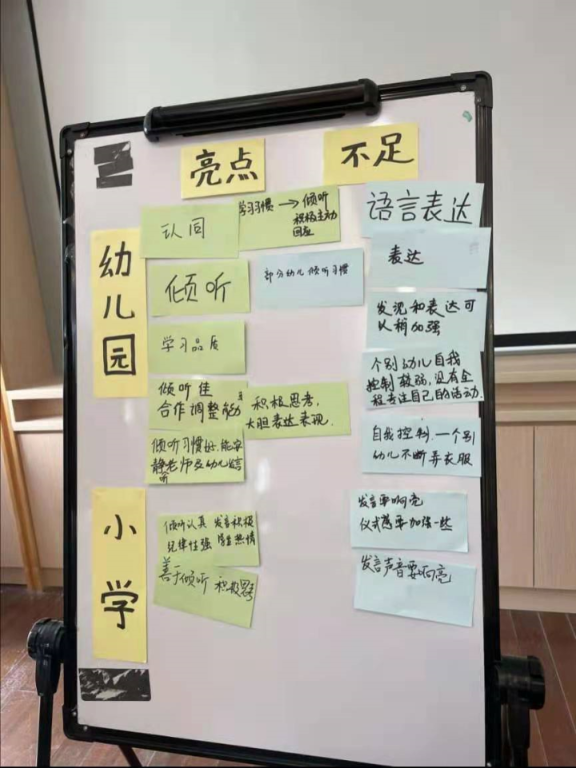 亮点
不足
幼儿园
认同
学习习惯→倾听
积极主动
回应
语言表达
倾听
部分幼儿倾听习惯
表达
学习品质
发现和表达可
以稍加强
倾听佳
合作调整能力
积极思考,
大胆表达表现.
个别幼儿自我
控制较弱,没有全
程专注自己的活动.
倾听习惯好,能安
静老师及幼儿
听
自我控制.一个别
幼儿不断弄衣服
小学
倾听认真 发言积极
纪律性强
发言要响亮
仪式感要加强一些
善于倾听 积极思考
发言声音要响亮